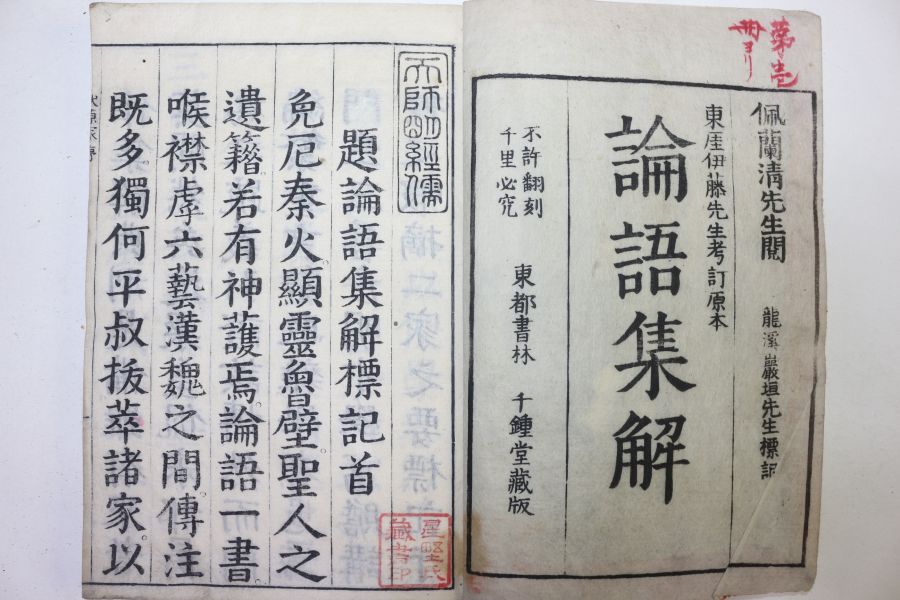 佩蘭清先生閲 龍溪巖垣先生標記
東厓伊藤先生考訂原本
論語集解
不許翻刻
千里必究
東都書林 千鍾堂藏版
天師明經儒
題論語集解標記首
免厄秦火顯靈魯壁聖人之
遺籍若有神護焉論語一書
喉襟虖六藝漢魏之間傳注
既多獨何平叔拔萃諸家以
星野氏
藏書印